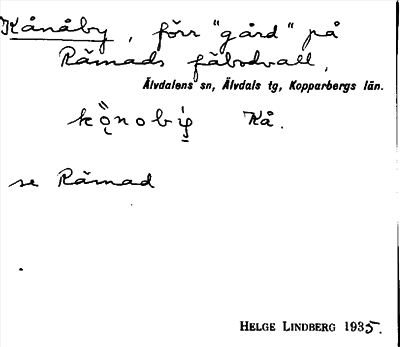 Kånåby, förr "gård" på
Råmads fäbodvall,
Älvdalens sn, Älvdals tg, Kopparbergs län.
Kå.
se Råmad
HELGE LINDBERG 1935.